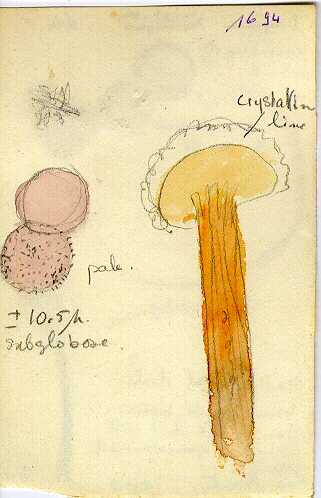 1694
crystallin
line
pale.
± 10.5 μ.
subglobose.